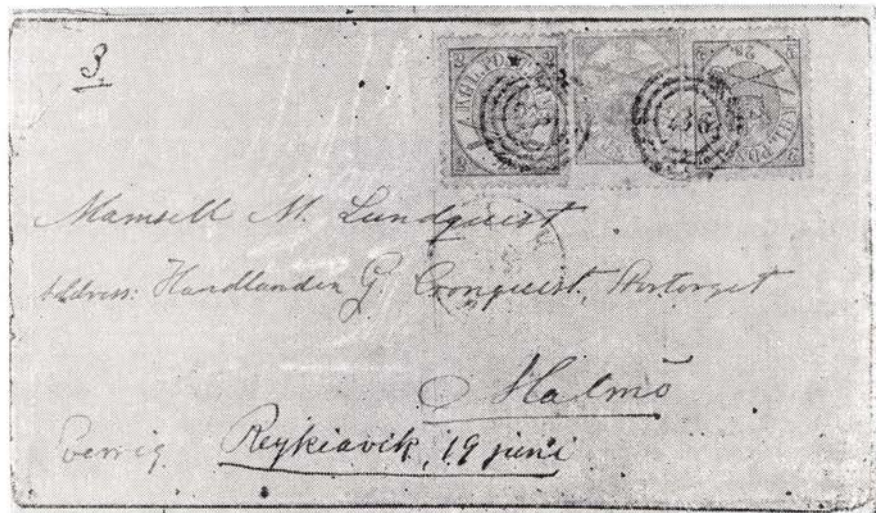 3
KGL. POST
KGL. POST
236
Mamsell M. Lundquist
Address: Handlanden G. Cronquist, Stortorget
Malmö
Sverrig Reykiavik, 19 juni